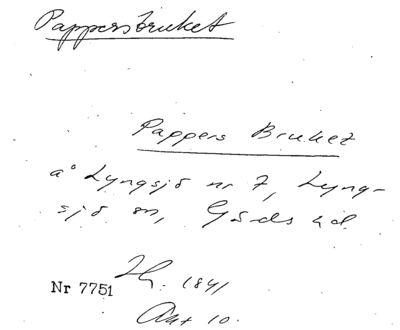 Pappersbruket
Pappers Bruket
å Lyngsjö nr 7, Lyng-
sjö sn, Gärds hd.
Jb. 1841
Nr 7751
Akt 10.